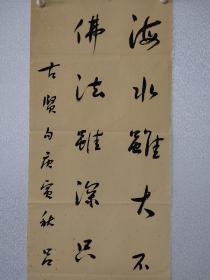 海水雖大不
佛法雖深只
古賢句庚寅秋呂